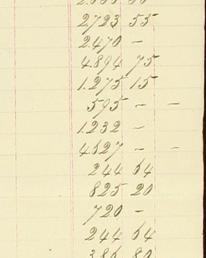 2723 55
2470 –
4894 75
1.275 15
595 – –
1.232 –
4527 – –
244 64
825 20
720 –
244 64
386 80